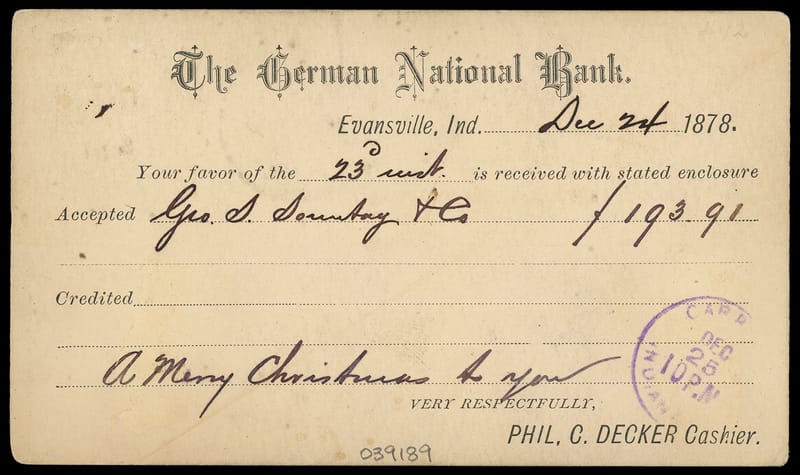 The German National Bank.
Evansville, Ind. Dec 24 1878.
Your favor of the 23d inst. is received with stated enclosure
Accepted Geo. S. Sonntag & Co $193.91
Credited
A Merry Christmas to you
VERY RESPECTFULLY,
PHIL, C. DECKER Cashier.
CARR
DEC
25
10 P.M
INDIAN
039189